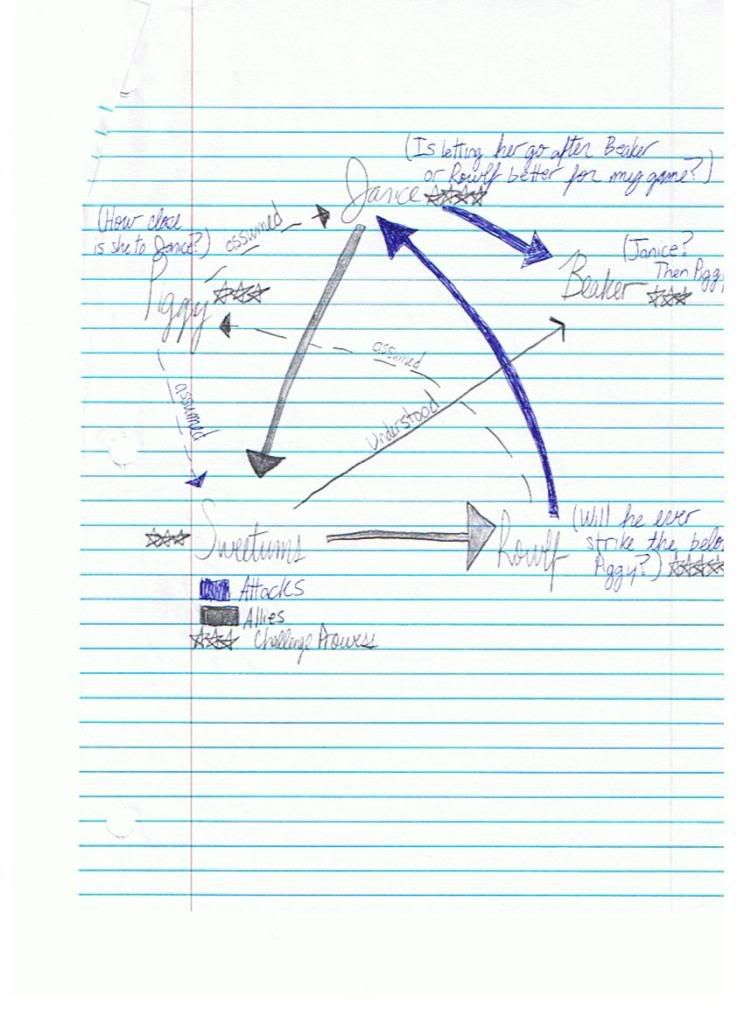 (Is letting her go after Beaker
or Rowlf better for my game?)
Janice
(How close
is she to Janice?)
assumed
(Janice?
Then Piggy
Beaker
Piggy
assumed
assumed
Understood
Sweetums
Rowlf
(Will he ever
strike the belo
Piggy?)
Attacks
Allies
Challenge Prowess